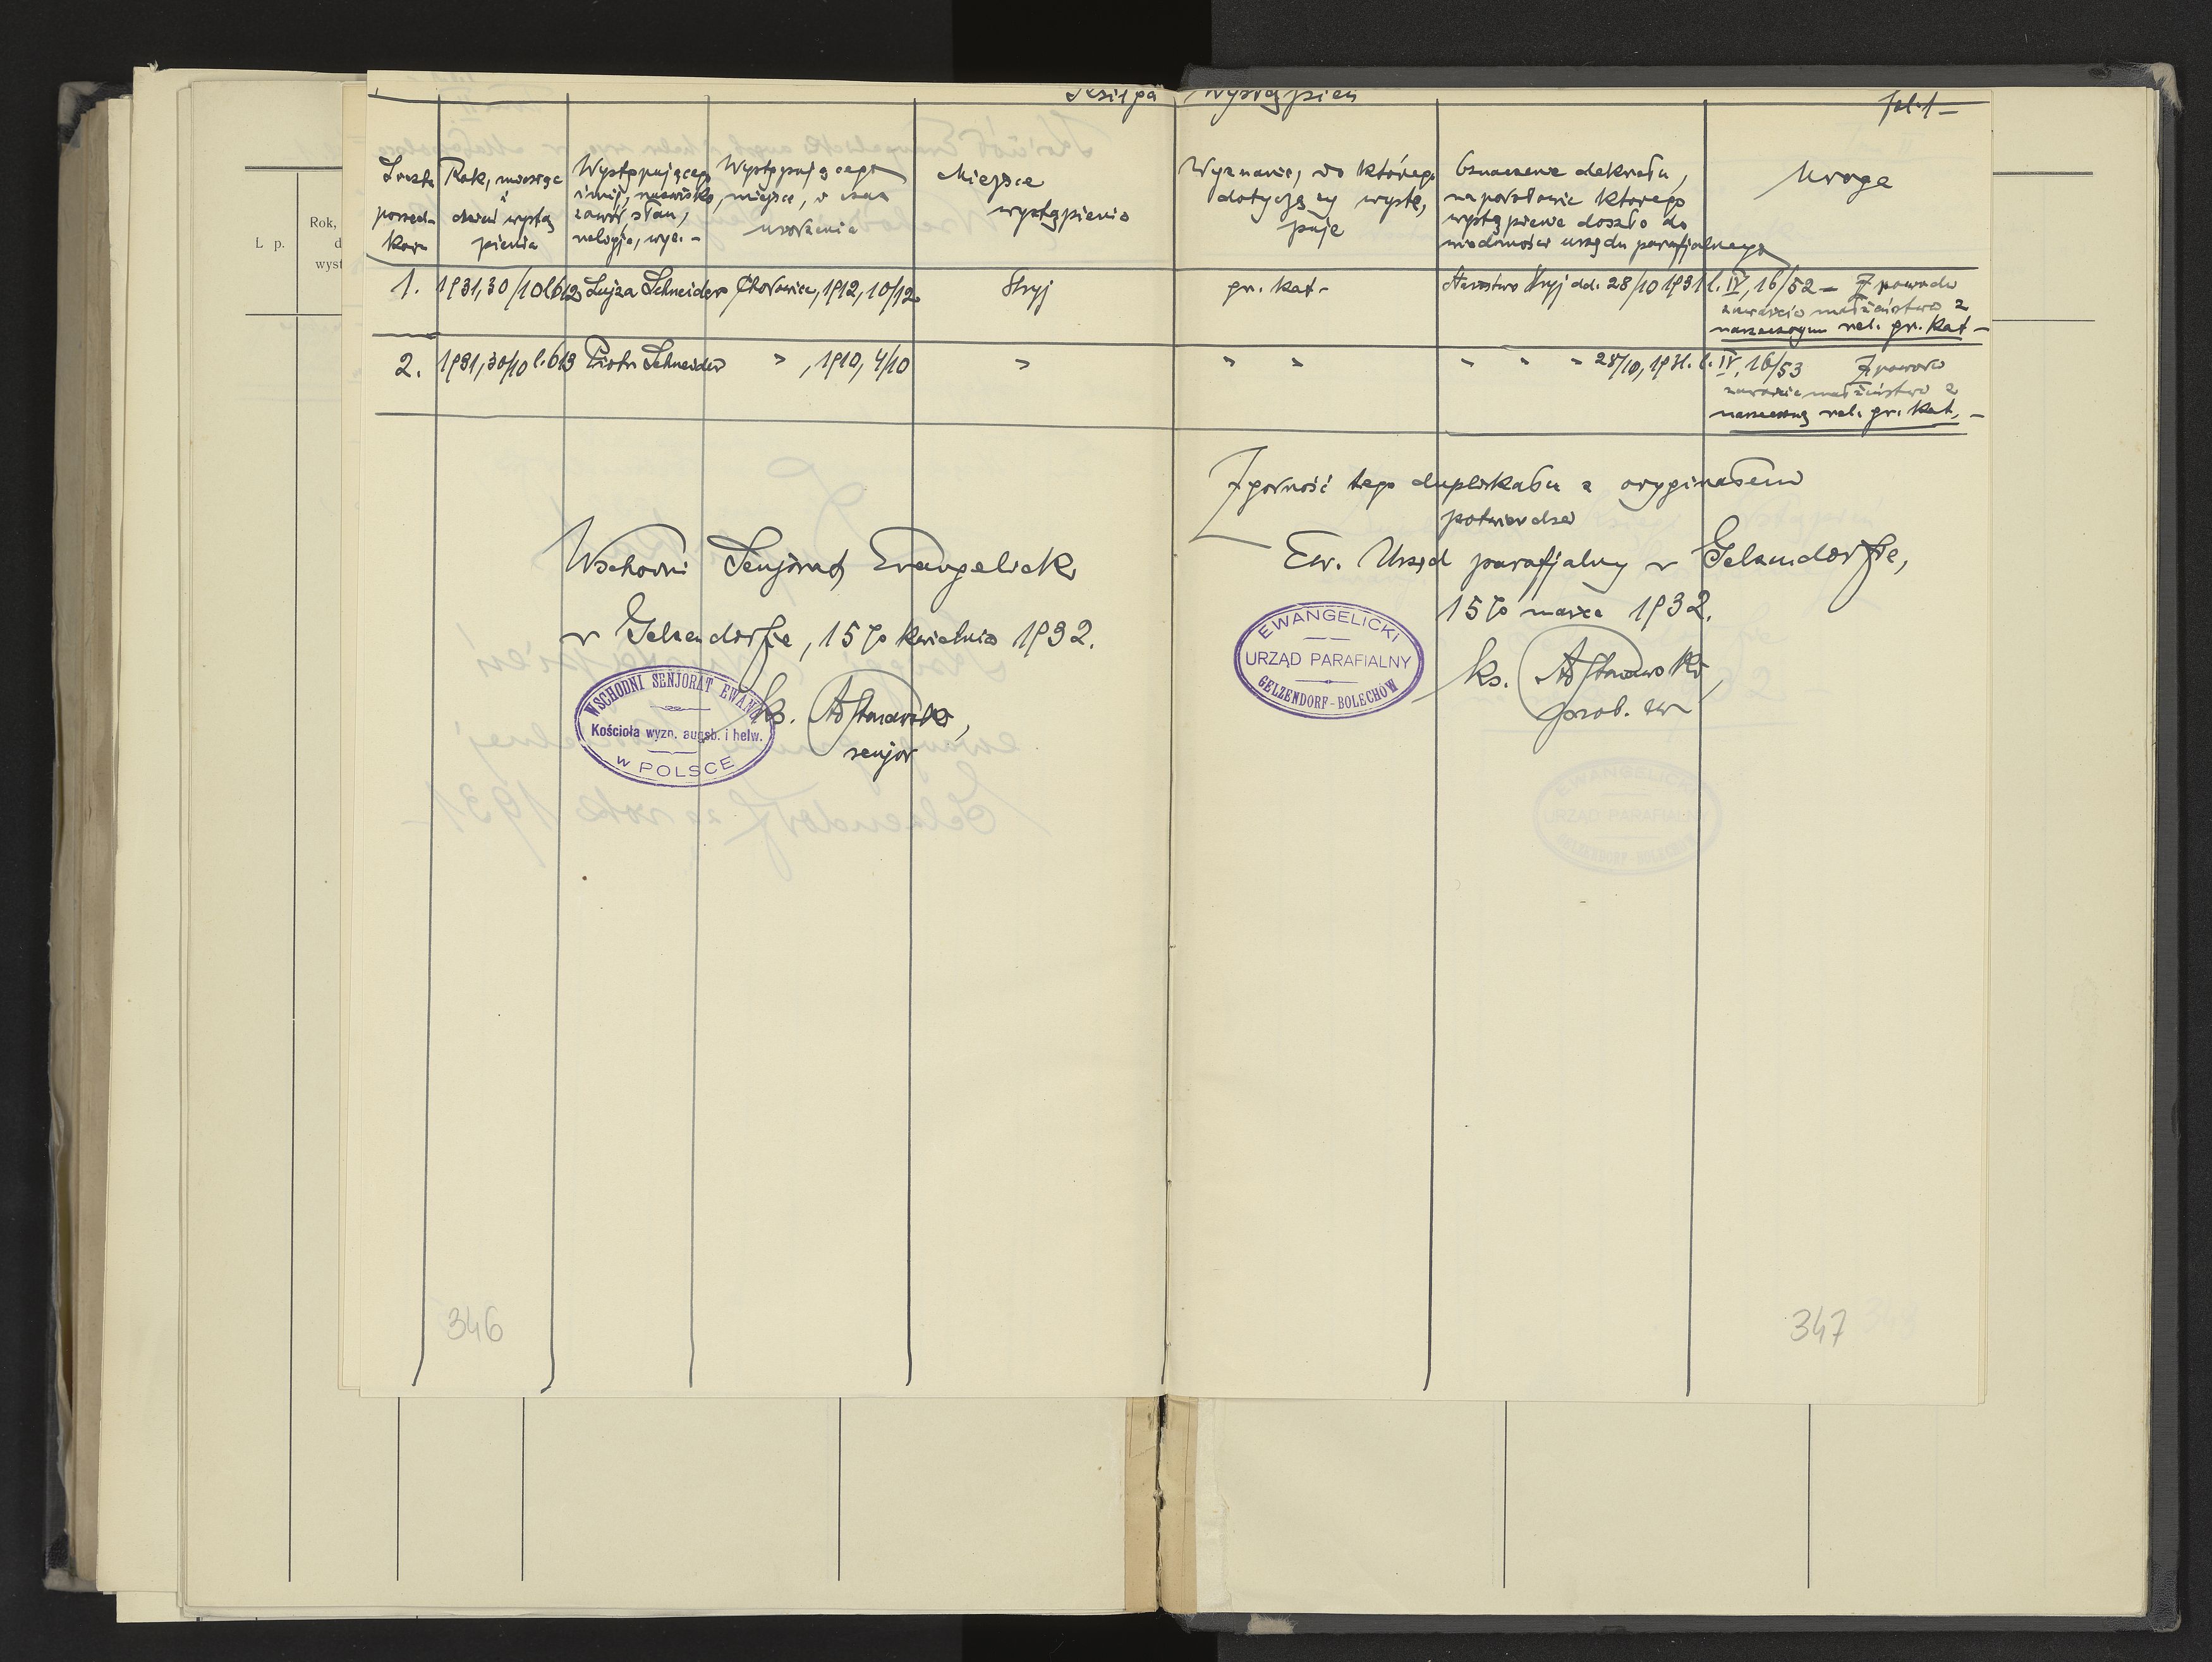 Księga Wystąpień
fol. 1 –
L. p.
Rok,
d
wyst
Liczba
porząd-
kow
Rok, miesiąc
i
dzień wystą
pienia
Występującego
imię, nazwisko,
zawód, stan,
religja, wyz. –
Występującego
miejsce, i czas
urodzenia
Miejsce
wystąpienia
Wyznanie, do którego
dotyczący wystę,
puje
Oznaczenie dekretu,
na podstawie którego
wystąpienie doszło do
wiadomości urzędu parafjalnego
Uwaga
1. 1931, 30/10 l. 612 Lujza Schneider 1912, 10/12. Stryj gr. kat – Starostwo Stryj dd. 28/10 1931 l. IV, 16/52 – Z powodu
zawarcia małżeństwa z
narzeczonym rel. gr. kat –
2. 1931, 30/10 l. 613 Piotr Schneider " , 1910, 4/10 " " " " " " 28/10, 1931. l. IV, 16/53 Z powodu
zawarcia małżeństwa z
narzeczoną rel. gr. kat. –
Zgodność tego duplikatu z oryginałem
potwierdza
Ew. Urząd parafjalny w Gelsendorfie,
15go marca 1932.
EWANGELICKI
URZĄD PARAFIALNY
GELZENDORF-BOLECHÓW
ks.
prob. ew
Wschodni Senjorat Ewangelicki
w Gelsendorfie, 15go kwietnia 1932.
WSCHODNI SENJORAT EWANG.
Kościoła wyzn. augsb. i helw.
w POLSCE
ks.
senjor
346
347